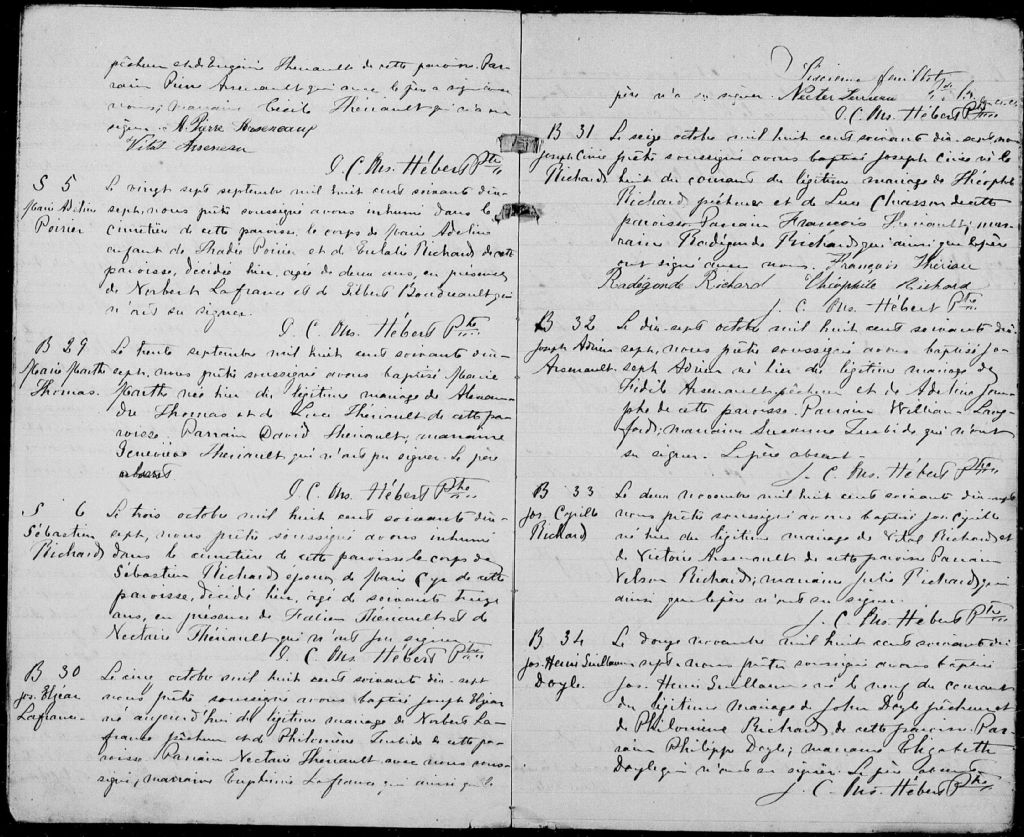 pêcheur et de Eugénie Theriault de cette paroisse. Par-
rain Pierre Arsenault qui avec le père a signé avec
nous; marraine Cécile Theriault qui n'a su
signer. A. Pierre Arseneaux
Vital Arseneau
J. C. Ms. Hébert Ptre
S 5 Le vingt sept septembre mil huit cent soixante dix-
Marie Adeline sept, nous prêtre soussigné avons inhumé dans le
Poirier cimetière de cette paroisse, le corps de Marie Adeline
enfant de Poirier et de Eulalie Richard de cette
paroisse, décédée hier, agée de deux ans, en présence
de Norbert Lafrance et de Gilbert Boudreault qui
n'ont su signer.
J. C. Ms. Hébert Ptre
B 29 Le trente septembre mil huit cent soixante dix-
Marie Marthe sept, nous prêtre soussigné avons baptisé Marie
Thomas. Marthe née hier du légitime mariage de Alexan-
dre Thomas et de Luce Theriault de cette pa-
roisse. Parrain David Theriault, marraine
Geneviève Theriault qui n'ont pu signer. Le père
absent
J. C. Ms. Hébert Ptre
S 6 Le trois octobre mil huit cent soixante dix-
Sébastien sept, nous prêtre soussigné avons inhumé
Richard dans le cimetière de cette paroisse le corps de
Sébastien Richard époux de Marie Cyr de cette
paroisse, décédé hier, agé de soixante treize
ans, en présence de Fabien Thériault et de
Nectaire Thériault qui n'ont su signer.
J. C. Ms. Hébert Ptre
B 30 Le cinq octobre mil huit cent soixante dix-sept
Jos. Elzéar nous prêtre soussigné avons baptisé Joseph Elzéar
Lafrance né aujourd'hui du légitime mariage de Norbert La-
france pêcheur et de Philomène Turbide de cette pa-
roisse Parrain Nectaire Thériault avec nous sous-
signé, marraine Euphémie Lafrance qui ainsi que le
Sixième feuillet
père n'a su signer Necter Terriau
J. C. Ms. Hébert Ptre
B 31 Le seize octobre mil huit cent soixante dix-sept, nous
Joseph prêtre soussigné avons baptisé Joseph né le
Richard huit du courant du légitime mariage de Théophile
Richard pêcheur et de Luce Chiasson de cette
paroisse. Parrain François Theriault; mar-
raine Radégonde Richard qui ainsi que le père
ont signé avec nous. François Thériau
Radégonde Richard Théophile Richard
J. C. Ms. Hébert Ptre
B 32 Le dix-sept octobre mil huit cent soixante dix-
Joseph Adrien sept, nous prêtre soussigné avons baptisé Jo-
Arsenault. seph Adrien né hier du légitime mariage de
Fidèle Arsenault pêcheur et de Adeline
de cette paroisse. Parrain William Lang-
ford; marraine Susanne Turbide qui n'ont
su signer. Le père absent.
J. C. Ms. Hébert Ptre
B 33 Le deux novembre mil huit cent soixante dix-sept
Jos. Cyrille nous prêtre soussigné avons baptisé Jos Cyrille
Richard né hier du légitime mariage de Vital Richard et
de Victoire Arsenault de cette paroisse Parrain
Nelson Richard; marraine Julie Richard, qui
ainsi que le père n'ont su signer.
J. C. Ms. Hébert Ptre
B 34 Le douze novembre mil huit cent soixante dix
Jos. Henri Guillaume sept, nous prêtre soussigné avons baptisé
Doyle. Jos. Henri Guillaume né le neuf du courant
du légitime mariage de John Doyle pêcheur et
de Philomène Richard de cette paroisse. Par-
rain Philippe Doyle; marraine Elizabeth
Doyle qui n'ont su signer. Le père absent.
J. C. Ms. Hébert Ptre